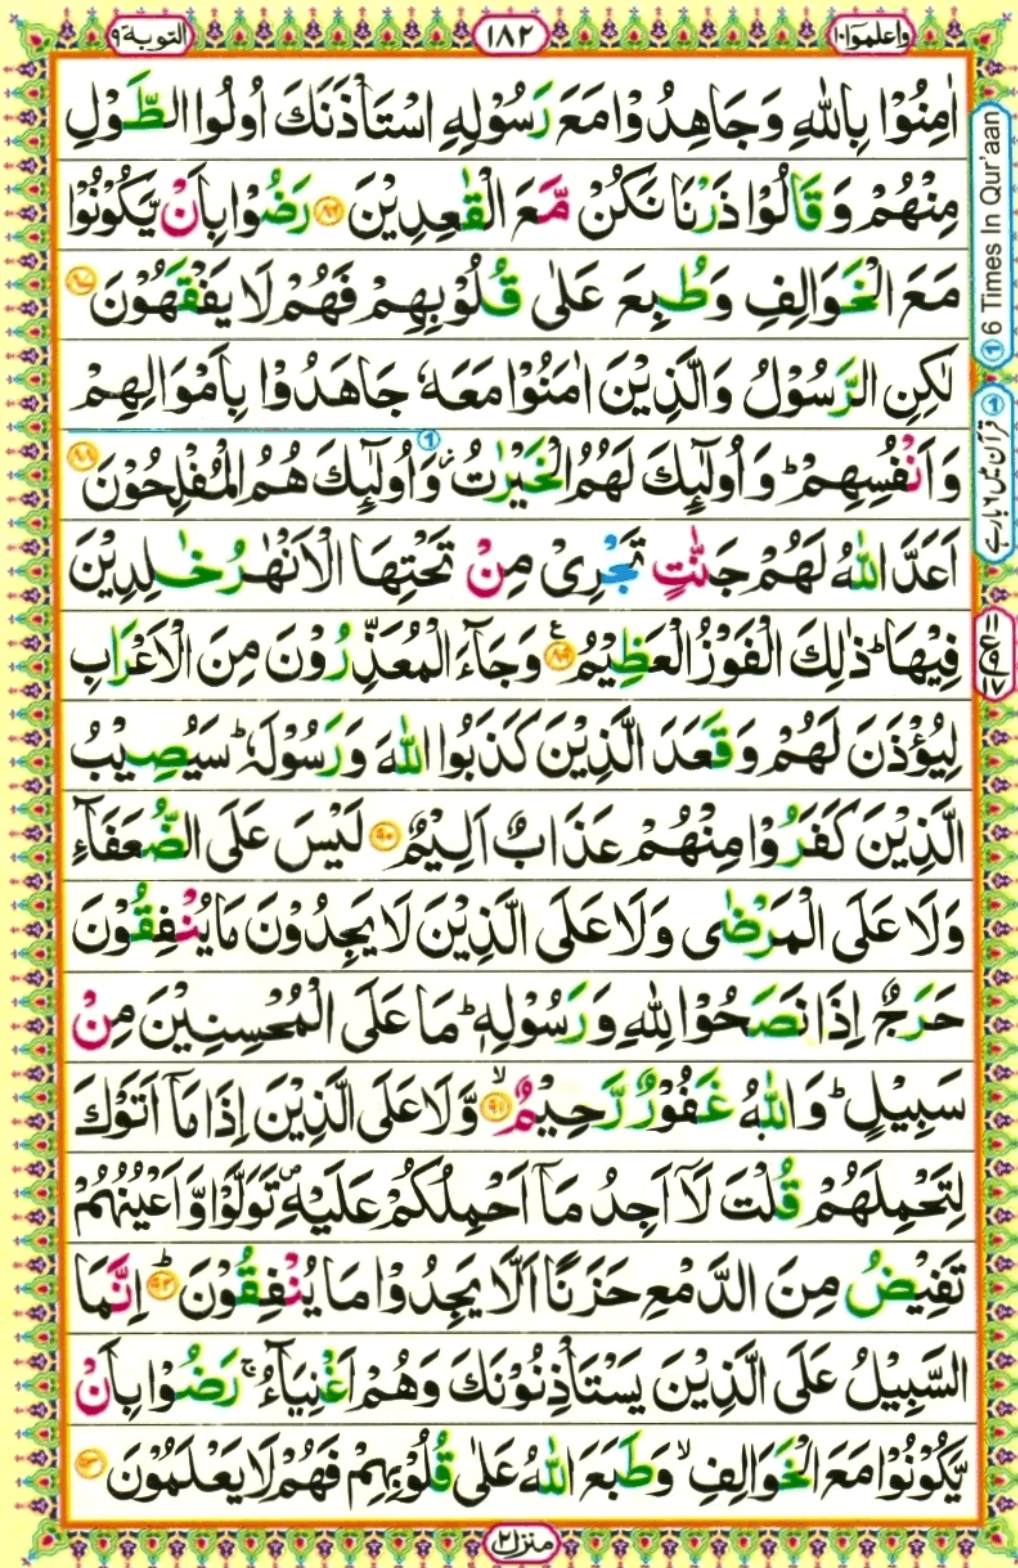 واعلموا ١٠
١٨٢
التوبة ٩
اٰمِنُوْا بِاللّٰهِ وَجَاهِدُوْا مَعَ رَسُوْلِهِ اسْتَاْذَنَكَ اُولُوا الطَّوْلِ
مِنْهُمْ وَقَالُوْا ذَرْنَا نَكُنْ مَّعَ الْقٰعِدِيْنَ ۝٨٦ رَضُوْا بِاَنْ يَّكُوْنُوْا
مَعَ الْخَوَالِفِ وَطُبِعَ عَلٰى قُلُوْبِهِمْ فَهُمْ لَا يَفْقَهُوْنَ ۝٨٧
لٰكِنِ الرَّسُوْلُ وَالَّذِيْنَ اٰمَنُوْا مَعَهٗ جَاهَدُوْا بِاَمْوَالِهِمْ
وَاَنْفُسِهِمْ ؕ وَاُولٰٓئِكَ لَهُمُ الْخَيْرٰتُ ؗ وَاُولٰٓئِكَ هُمُ الْمُفْلِحُوْنَ ۝٨٨
اَعَدَّ اللّٰهُ لَهُمْ جَنّٰتٍ تَجْرِىْ مِنْ تَحْتِهَا الْاَنْهٰرُ خٰلِدِيْنَ
فِيْهَا ؕ ذٰلِكَ الْفَوْزُ الْعَظِيْمُ ۝٨٩ ع وَجَآءَ الْمُعَذِّرُوْنَ مِنَ الْاَعْرَابِ
لِيُؤْذَنَ لَهُمْ وَقَعَدَ الَّذِيْنَ كَذَبُوا اللّٰهَ وَرَسُوْلَهٗ ؕ سَيُصِيْبُ
الَّذِيْنَ كَفَرُوْا مِنْهُمْ عَذَابٌ اَلِيْمٌ ۝٩٠ لَيْسَ عَلَى الضُّعَفَآءِ
وَلَا عَلَى الْمَرْضٰى وَلَا عَلَى الَّذِيْنَ لَا يَجِدُوْنَ مَا يُنْفِقُوْنَ
حَرَجٌ اِذَا نَصَحُوْا لِلّٰهِ وَرَسُوْلِهٖ ؕ مَا عَلَى الْمُحْسِنِيْنَ مِنْ
سَبِيْلٍ ؕ وَاللّٰهُ غَفُوْرٌ رَّحِيْمٌ ۝٩١ ۙ وَّلَا عَلَى الَّذِيْنَ اِذَا مَآ اَتَوْكَ
لِتَحْمِلَهُمْ قُلْتَ لَآ اَجِدُ مَآ اَحْمِلُكُمْ عَلَيْهِ ۪ تَوَلَّوْا وَّاَعْيُنُهُمْ
تَفِيْضُ مِنَ الدَّمْعِ حَزَنًا اَلَّا يَجِدُوْا مَا يُنْفِقُوْنَ ۝٩٢ ؕ اِنَّمَا
السَّبِيْلُ عَلَى الَّذِيْنَ يَسْتَاْذِنُوْنَكَ وَهُمْ اَغْنِيَآءُ ۚ رَضُوْا بِاَنْ
يَّكُوْنُوْا مَعَ الْخَوَالِفِ ۙ وَطَبَعَ اللّٰهُ عَلٰى قُلُوْبِهِمْ فَهُمْ لَا يَعْلَمُوْنَ ۝٩٣
① 6 Times In Qur'aan
① قرآن میں ۶ بار ہے
ع
منزل ٢